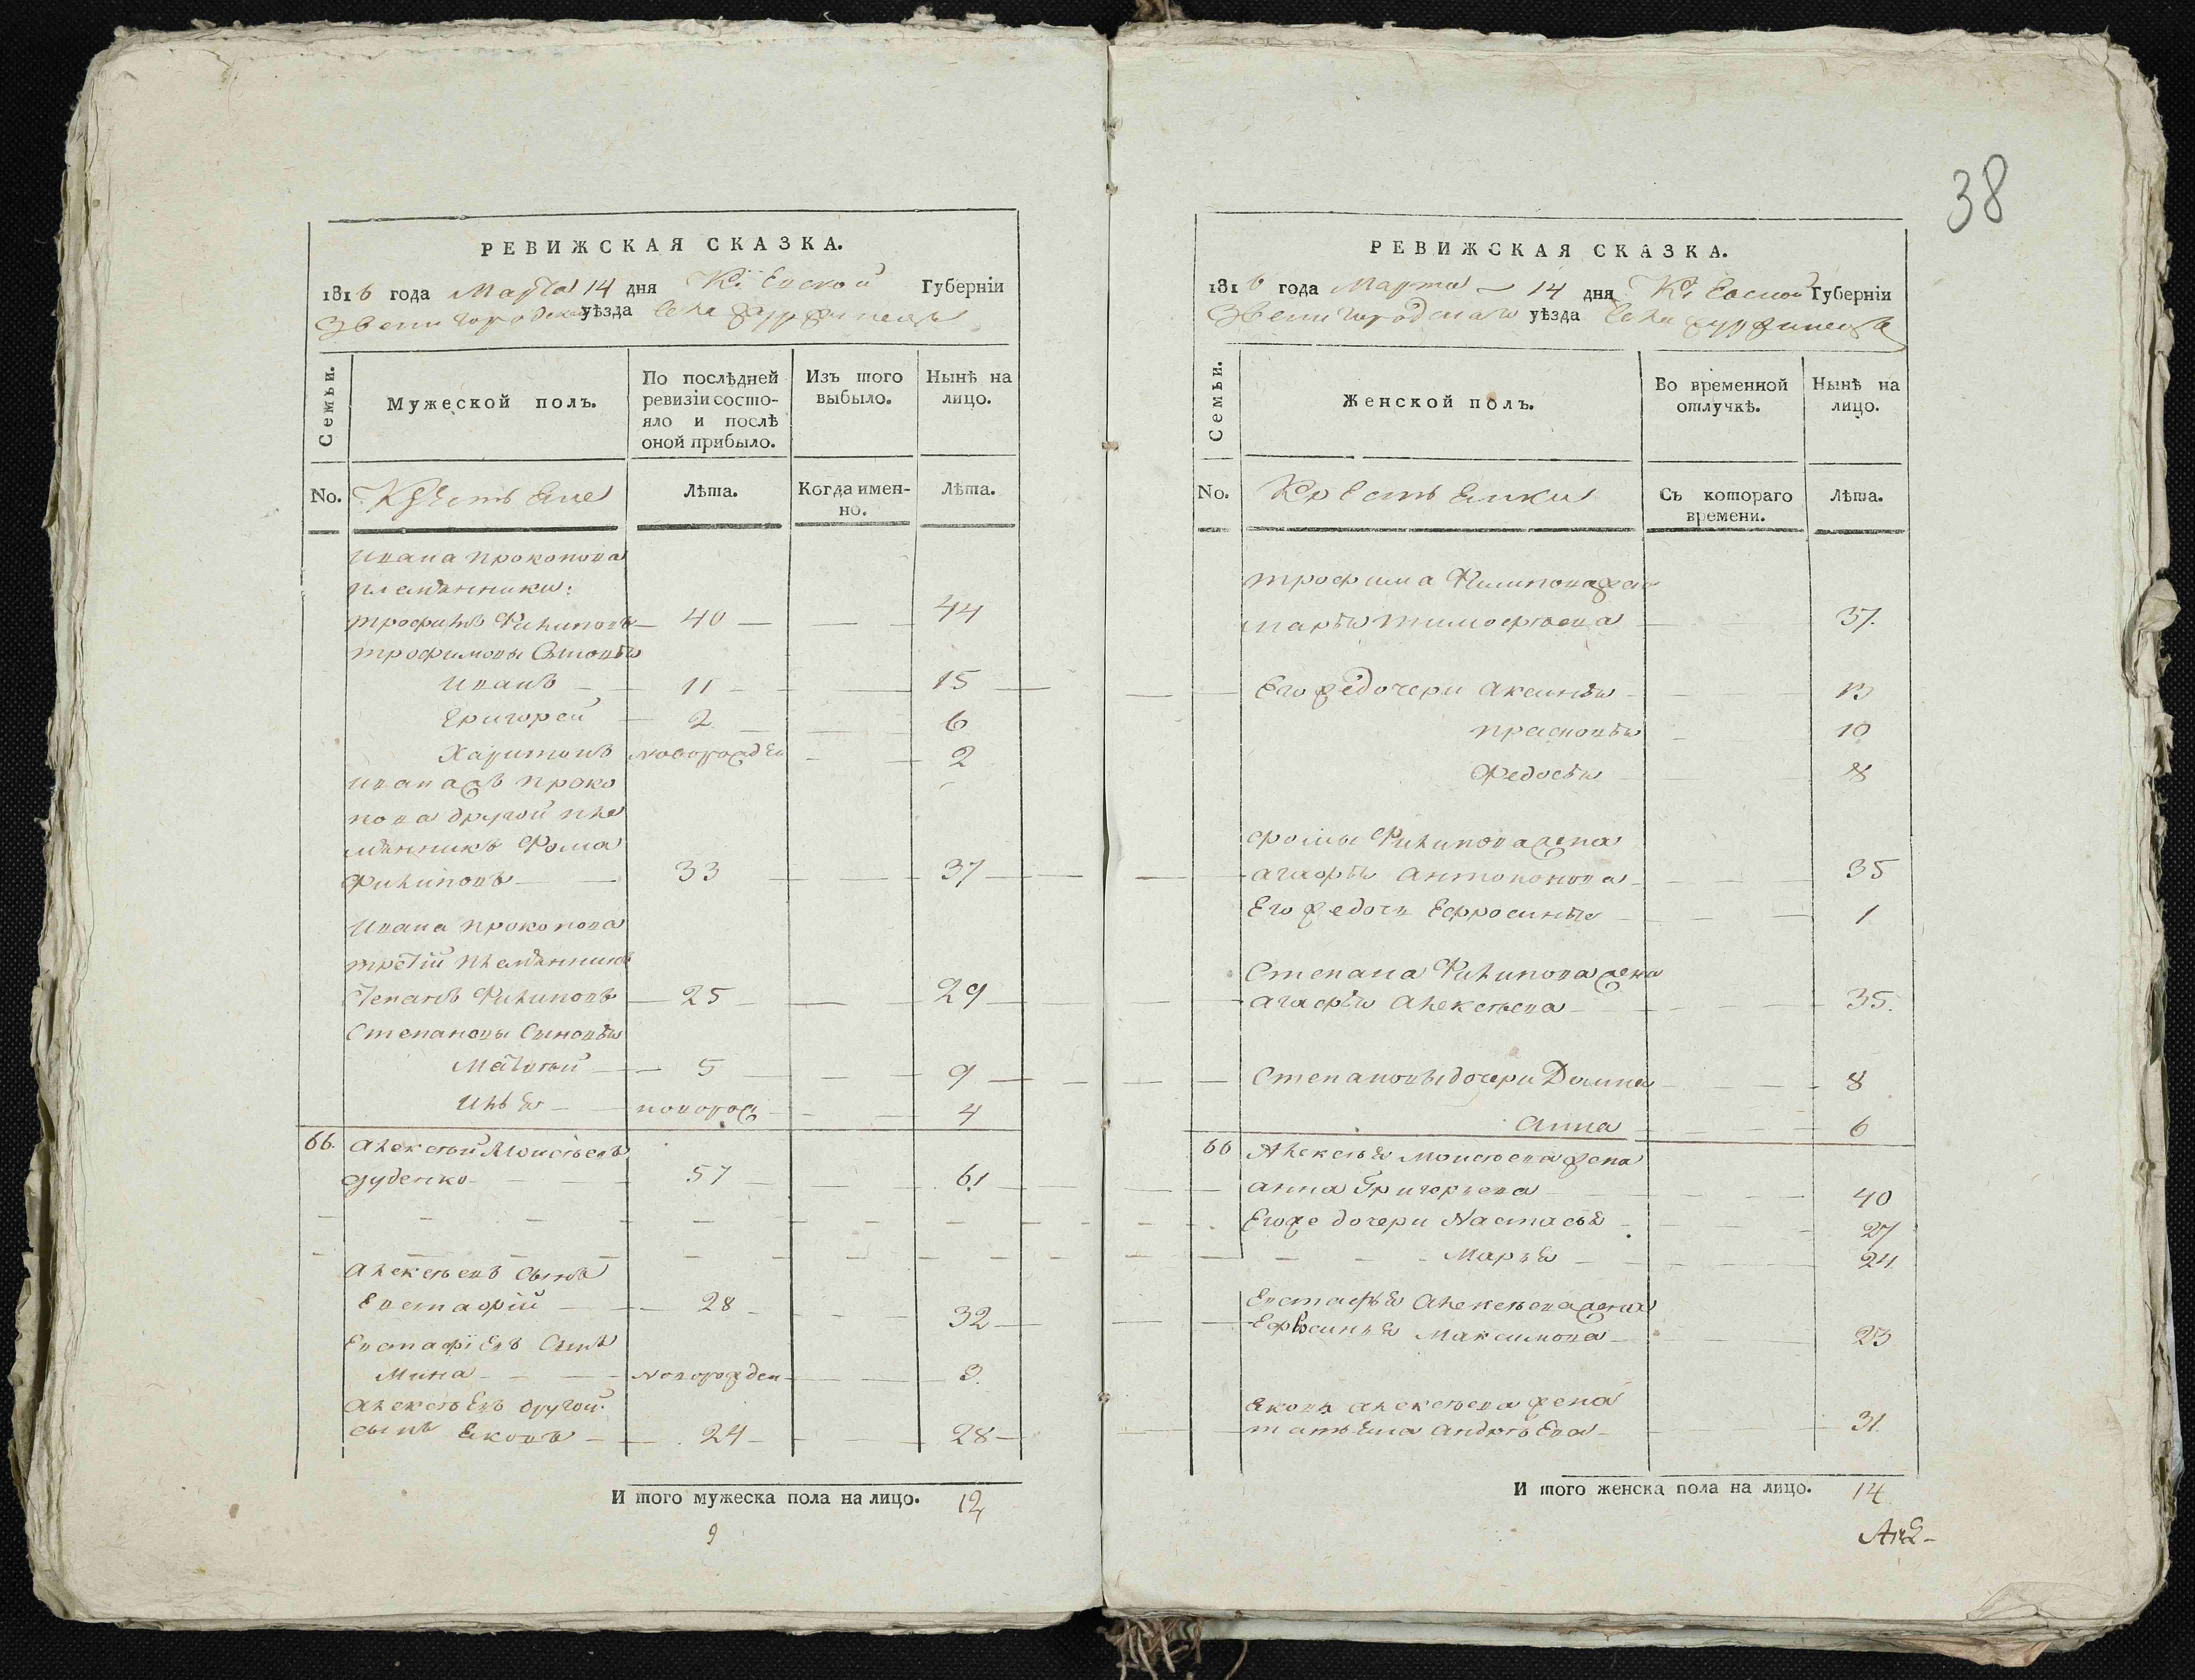 38
РЕВИЖСКАЯ СКАЗКА.
1816 года Марта 14 дня Кіевской Губерніи
Звенигородскаго уѣзда Села
Семьи.
Мужеской полъ.
По послѣдней ревизіи состояло и послѣ оной прибыло.
Изъ того выбыло.
Нынѣ на лицо.
No.
Крестьяне
Лѣта.
Когда именно.
Лѣта.
Ивана Прокопова
племянники:
трофимъ Филиповъ 40 44
трофимовы Сыновья
Иванъ 11 15
Григорей 2 6
Харитонъ новорожден 2
Ивана жъ Проко
пова другой пле
мянникъ Фома
Филиповъ 33 37
Ивана Прокопова
третій племянникъ
Степанъ Филиповъ 25 29
Степановы Сыновья
Матвѣй 5 9
Илья новорож 4
66. Алексѣй Моисѣевъ
дуденко 57 61
Алексѣевъ Сынъ
Евстафій 28 32
Евстафіевъ Сынъ
Мина Новорожден 3.
Алексѣевъ другой
сынъ Яковъ 24 28
И того мужеска пола на лицо. 12
9
РЕВИЖСКАЯ СКАЗКА.
1816 года Марта 14 дня Кіевской Губерніи
Звенигородскаго уѣзда Села
Семьи.
Женской полъ.
Во временной отлучкѣ.
Нынѣ на лицо.
No.
Крестьянки
Съ котораго времени.
Лѣта.
трофима Филипова жена
марья тимофѣева 37.
Его же дочери Аксинья 13
прасковья 10
Федосья 8
фомы Филипова жена
агафья антоно­нова 35
Его же дочь Ефросинья 1
Степана Филипова жена
агафья Алексѣева 35.
Степановы дочери Домна 8
Анна 6
66 Алексѣя Моисѣева жена
анна Григорьева 40
Его же дочери Настасья 27
Марья 24
Евстафья Алексѣева жена
Ефросинья Максимова 23
Якова алексѣева жена
татьяна андрѣева 31.
И того женска пола на лицо. 14